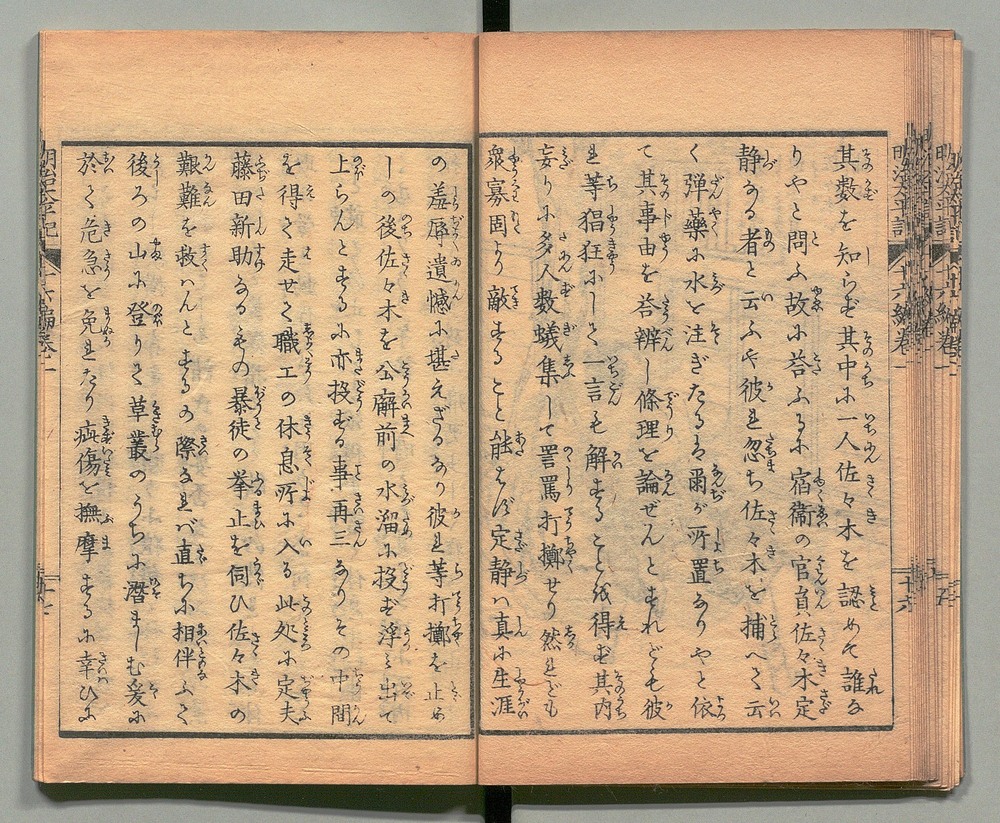 其数を知らず其中に一人佐々木を認めて誰な
りやと問ふ故に答ふるに宿衞の官員佐々木定
静なる者と云ふや彼れ忽ち佐々木を捕へて云
く弾藥に水を注ぎたるは爾が所置なりやと依
て其事由を答辨し條理を論ぜんとすれども彼
れ等猖狂にして一言も解することを得ず其内
妄りに多人数蟻集して詈罵打擲せり然れども
衆寡固より敵すること能はず定静ハ真に生涯
の羞辱遺憾に堪えざるなり彼れ等打擲を止め
しの後佐々木を公廨前の水溜に投ず浮み出て
上らんとするに亦投ずる事再三なりその中間
を得て走せて職工の休息所に入る此処に定夫
藤田新助なるもの暴徒の挙止を伺ひ佐々木の
艱難を救はんとするの際なれバ直ちに相伴ふて
後ろの山に登りて草叢のうちに潛ましむ爰に
於て危急を免れたり疵傷を撫摩するに幸ひに
明治太平記 十六編巻一